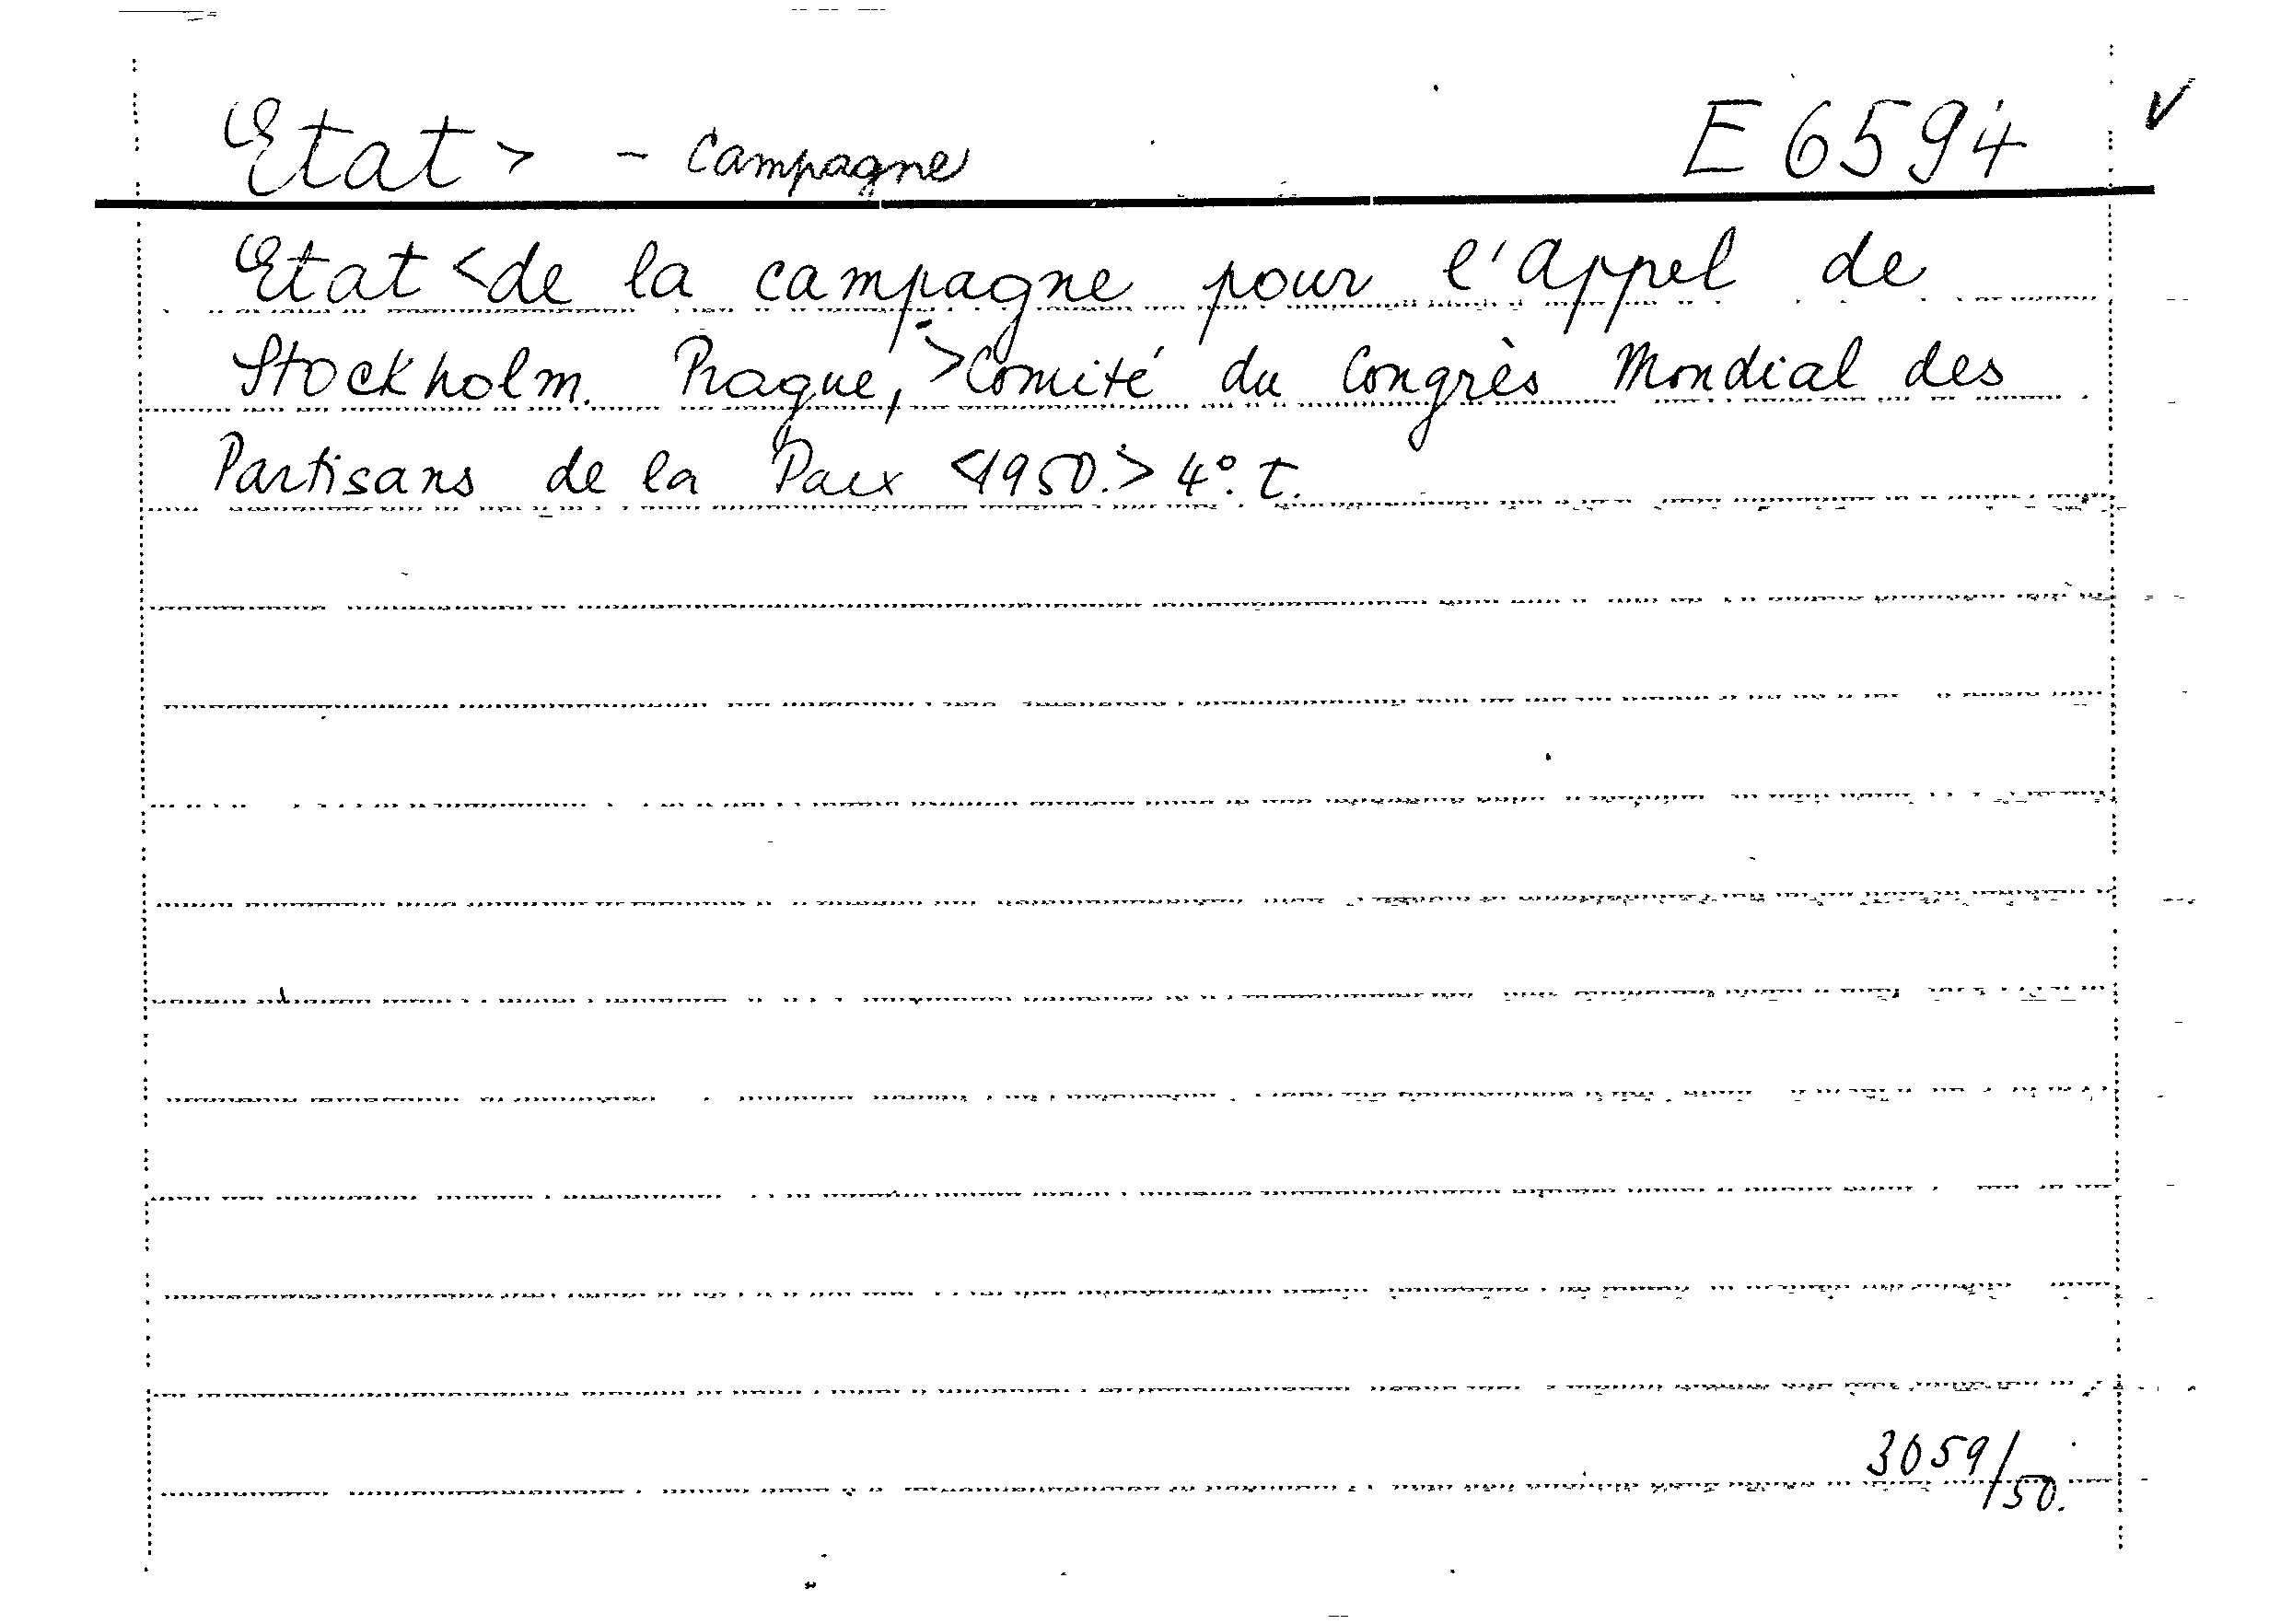 Etat > - Campagne E 6594 ✓
Etat < de la campagne pour l'Appel de
Stockholm. Prague, > Comité du Congrès Mondial des
Partisans de la Paix <1950.> 4°. t.
3059/50.